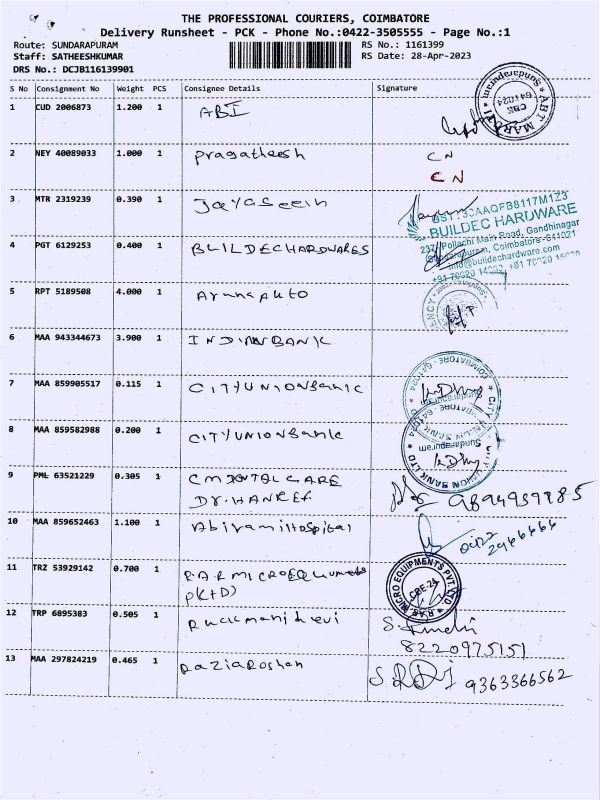 THE PROFESSIONAL COURIERS, COIMBATORE
Delivery Runsheet - PCK - Phone No.:0422-3505555 - Page No.:1
Route: SUNDARAPURAM RS No.: 1161399
Staff: SATHEESHKUMAR RS Date: 28-Apr-2023
DRS No.: DCJB116139901
S No Consignment No Weight PCS Consignee Details Signature
1 CUD 2006873 1.200 1 ABI
ABT MARUTI Sundarapuram CBE 641024
2 NEY 40089033 1.000 1 Pragatheesh CN
CN
3 MTR 2319239 0.390 1 Jayaseeih
BUILDEC HARDWARE
237, Pollachi Main Road, Gandhinagar
Sundarapuram, Coimbatore-641021
info@buildechardware.com
4 PGT 6129253 0.400 1 BUILDECHARDWARES
5 RPT 5189508 4.000 1
6 MAA 943344673 3.900 1 INDIANBANK
7 MAA 859905517 0.115 1 CITYUNIONBANK
8 MAA 859582988 0.200 1 CITYUNIONBANK
CITY UNION BANK LTD
Sundarapuram
COIMBATORE - 641024
9 PML 63521229 0.305 1 CM DENTAL CARE
Dr. HANEEF
10 MAA 859652463 1.100 1 AbiramiHospital
0422
2966666
11 TRZ 53929142 0.700 1 R.A.R MICRO
R.A.R. MICRO EQUIPMENTS PVT. LTD
CBE-24
12 TRP 6895383 0.505 1 Ruckmanidevi
8220975151
13 MAA 297824219 0.465 1 RaziaRoshan 9363366562